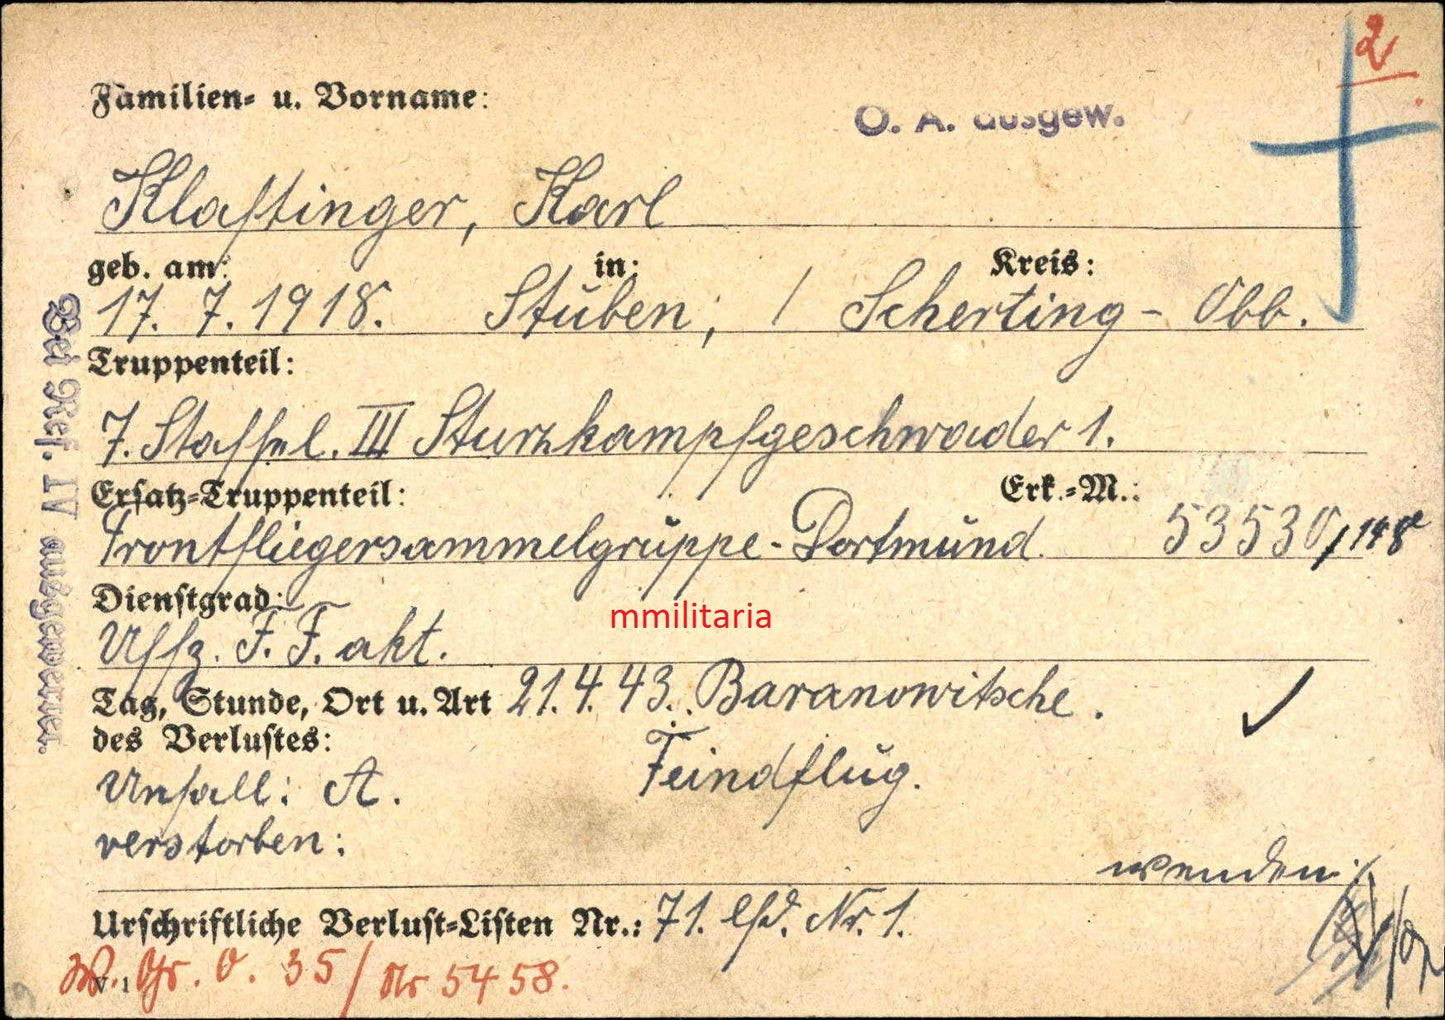 2
Familien- u. Vorname:
O. A. ausgew.
Klaffinger, Karl
geb. am: in: Kreis:
17. 7. 1918. Stuben, / Scherting - Obb.
Truppenteil:
7. Staffel. III Sturzkampfgeschwader 1.
Ersatz-Truppenteil: Erk.-M.:
Frontfliegersammelgruppe - Dortmund. 53530/148
Dienstgrad:
mmilitaria
Uffz. F. F. akt.
Tag, Stunde, Ort u. Art 21.4.43. Baranowitsche.
des Verlustes:
Feindflug.
Unfall: A.
verstorben:
wenden
Urschriftliche Verlust-Listen Nr.: 71. lfd. Nr. 1.
Gr. O. 35 / Nr 5458.
V. 1
Bei Ref. IV ausgewertet.